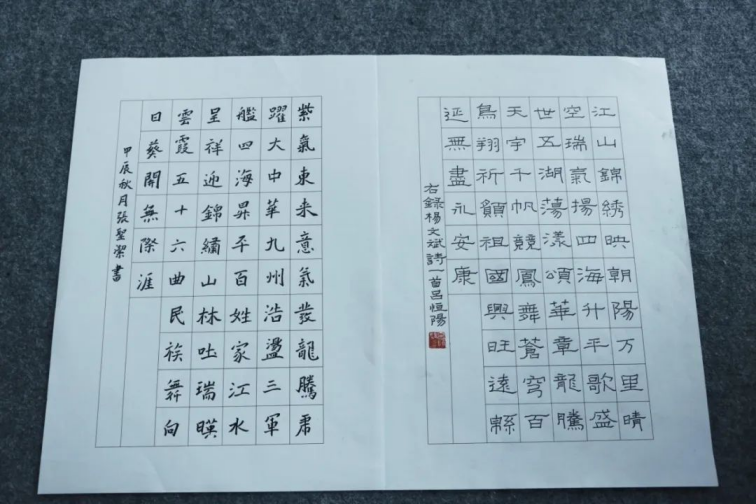 江山錦綉映朝陽万里晴
空瑞氣揚四海升平歌盛
世五湖蕩漾頌華章龍騰
天宇千帆競鳳舞蒼穹百
鳥翔祈願祖國興旺遠緜
延無盡永安康
右錄楊文斌詩一首呂恒陽
紫氣東来意氣發龍騰虎
躍大中華九州浩盪三軍
艦四海昇平百姓家江水
呈祥迎錦繡山林吐瑞暎
雲霞五十六曲民族舞向
日葵開無際涯
甲辰秋月張聖潔書